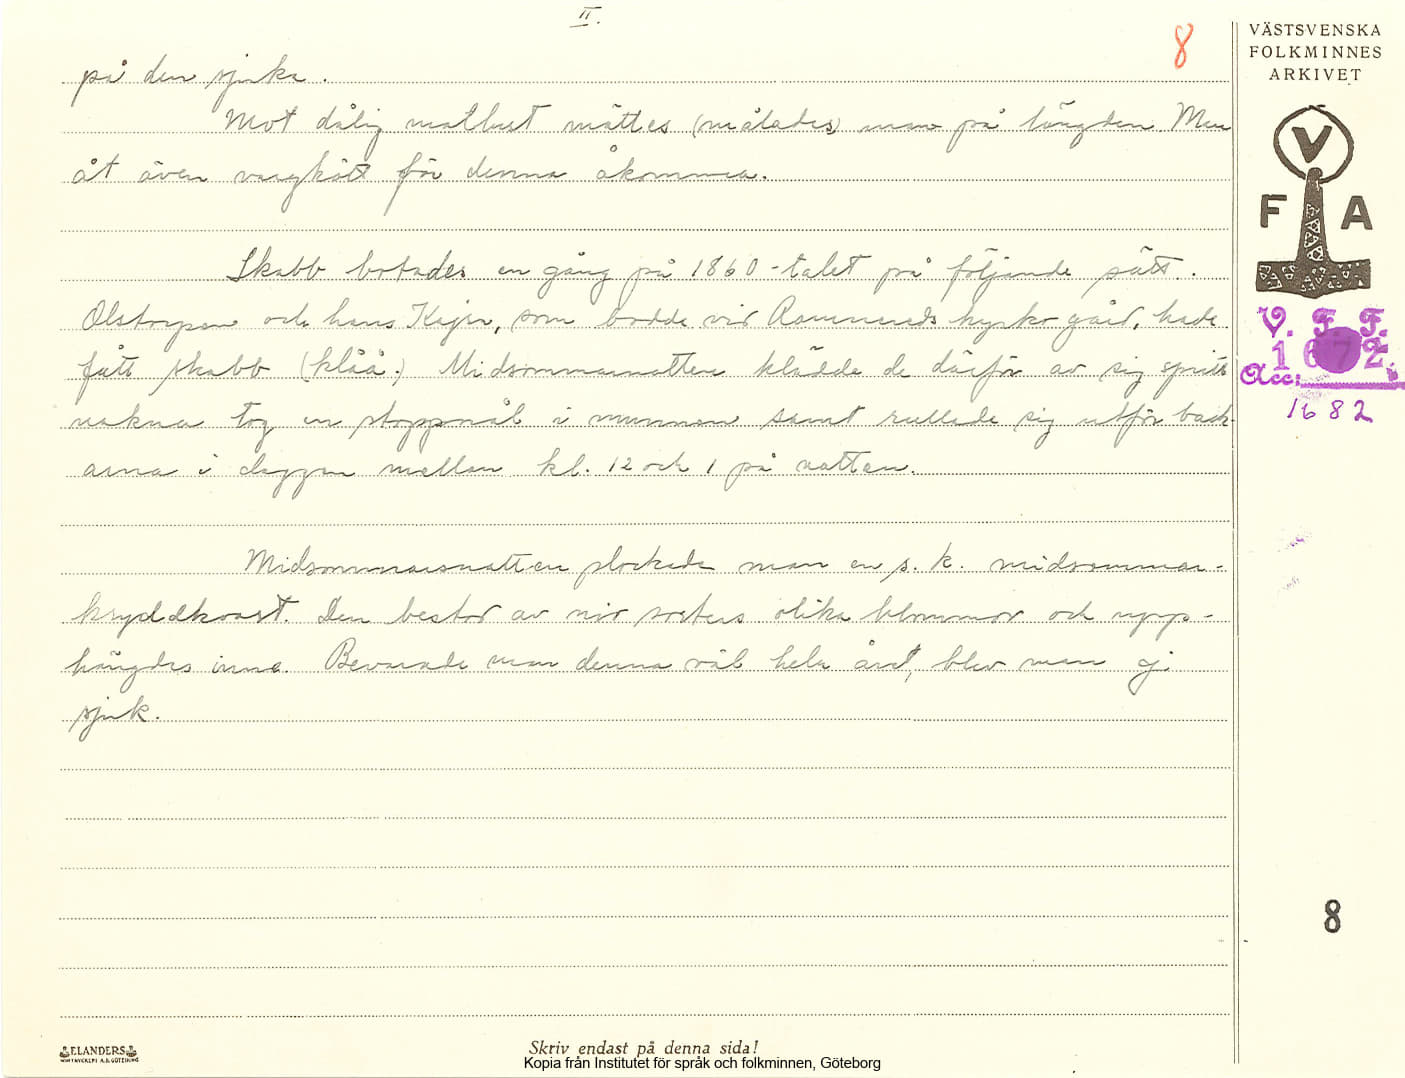 II.
8
på den sjuka.
Mot dålig matlust mättes (målades) man på längden. Man
åt även vargkött för denna åkomma.
Skabb botades en gång på 1860-talet på följande sätt.
Olstorpen och hans Kajsa, som bodde vid Rommeneds kyrko gård, hade
fått skabb (klåå.) Midsommarnatten klädde de därför av sig spritt
nakna tog en stoppnål i munnen samt rullade sig utför back-
arna i daggen mellan kl. 12 och 1 på natten.
Midsommarsnatten plockade man en s. k. midsommar-
kryddkvast. Den bestod av nio sorters olika blommor och upp-
hängdes inne. Bevarade man denna väl hela året, blev man ej
sjuk.
VÄSTSVENSKA
FOLKMINNES
ARKIVET
V
F A
V. F. F.
1672
Acc:
1682
8
ELANDERS
Skriv endast på denna sida!
Kopia från Institutet för språk och folkminnen, Göteborg